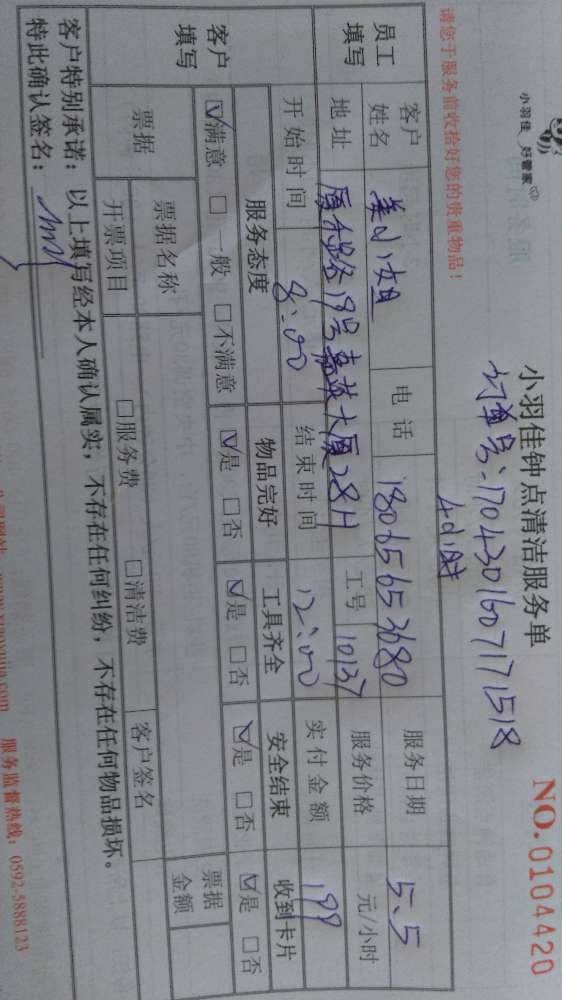 小羽佳 好管家
小羽佳钟点清洁服务单
NO.0104420
订单号:1704301607171518
请您于服务前收拾好您的贵重物品!
4小时
员工填写
客户姓名 姜小姐 电话 18065653680 服务日期 5.5
地址 厦禾路19号嘉英大厦28H 工号 10137 服务价格 元/小时
开始时间 8:00 结束时间 12:00 实付金额 199
客户填写
服务态度 物品完好 工具齐全 安全结束 收到卡片
☑满意 □一般 □不满意 ☑是 □否 ☑是 □否 ☑是 □否 ☑是 □否
票据 票据名称 票据金额
开票项目 □服务费 □清洁费 客户签名
客户特别承诺:以上填写经本人确认属实,不存在任何纠纷,不存在任何物品损坏。
特此确认签名:
www.xiaoyujia.com 服务监督热线:0592-5888123